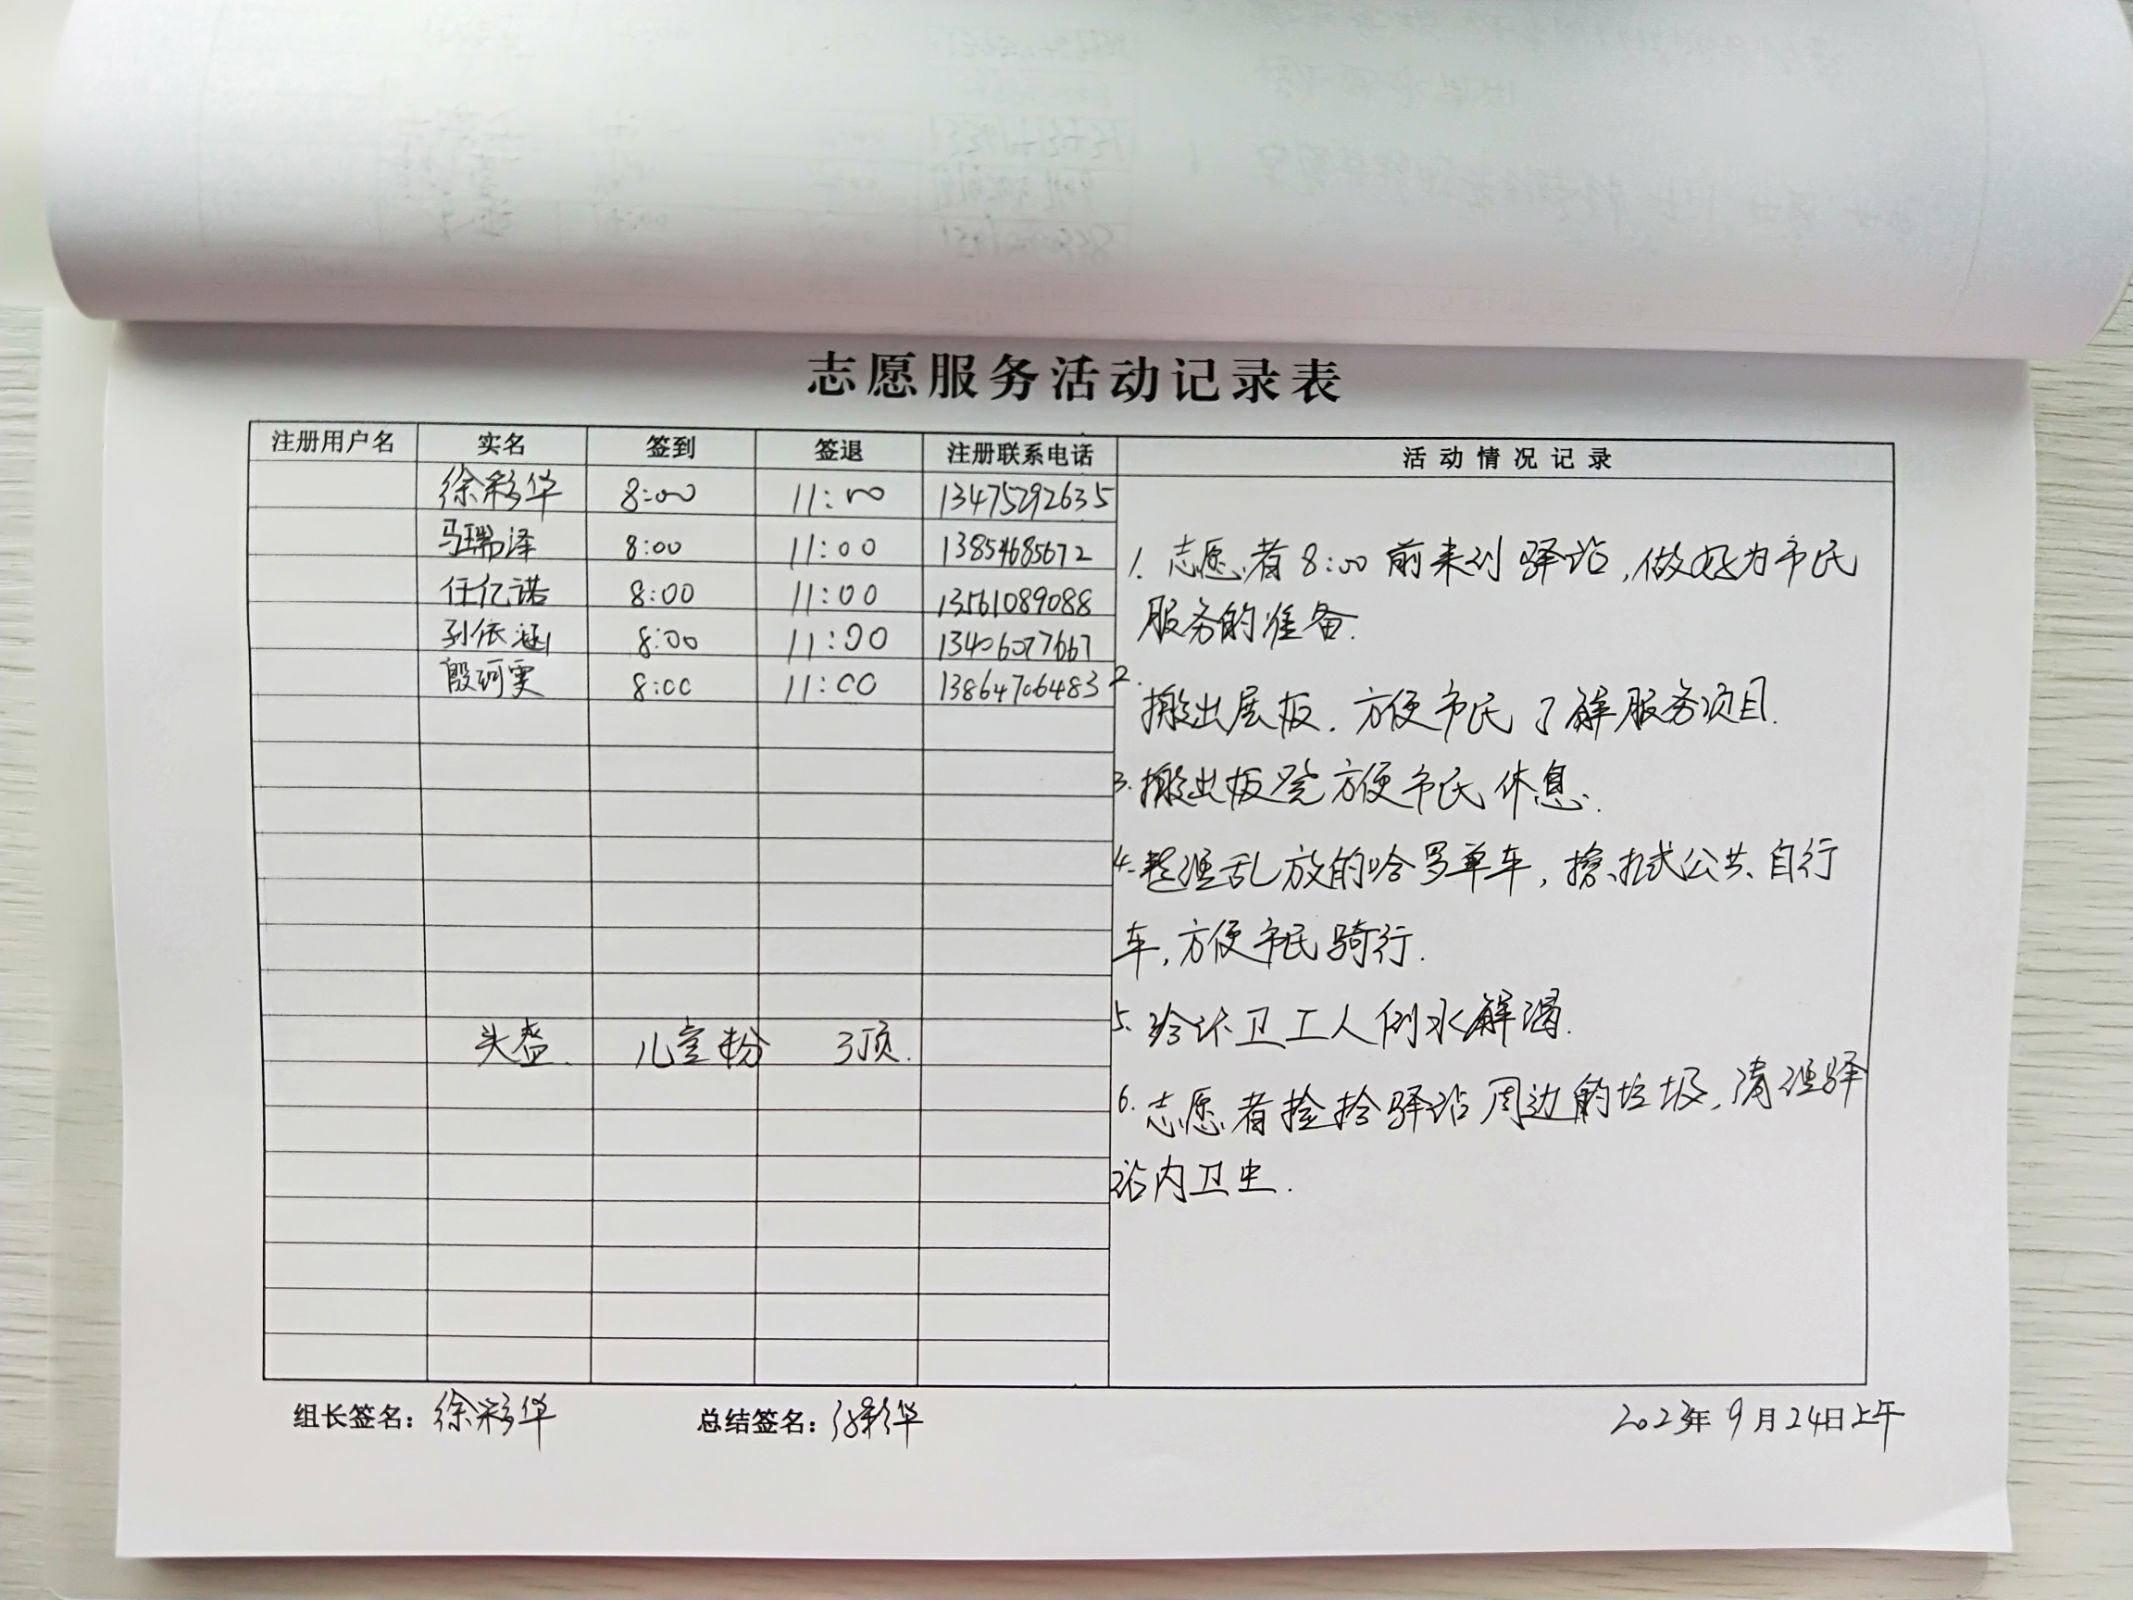 志愿服务活动记录表
注册用户名 实名 签到 签退 注册联系电话 活动情况记录
徐彩华 8:00 11:00 13475292635
马瑞泽 8:00 11:00 13854685672
任亿诺 8:00 11:00 13561089088
孙依涵 8:00 11:00 13406077667
殷珂雯 8:00 11:00 13864706483
头盔. 儿童粉 3顶.
1. 志愿者8:00前来到驿站,做好为市民
服务的准备.
2.
搬出展板.方便市民了解服务项目.
3.搬出板凳方便市民休息.
4.整理乱放的哈罗单车,擦拭公共自行
车,方便市民骑行.
5.给环卫工人倒水解渴.
6.志愿者捡拾驿站周边的垃圾,清理驿
站内卫生.
组长签名:徐彩华 总结签名:徐彩华 2023年9月24日上午